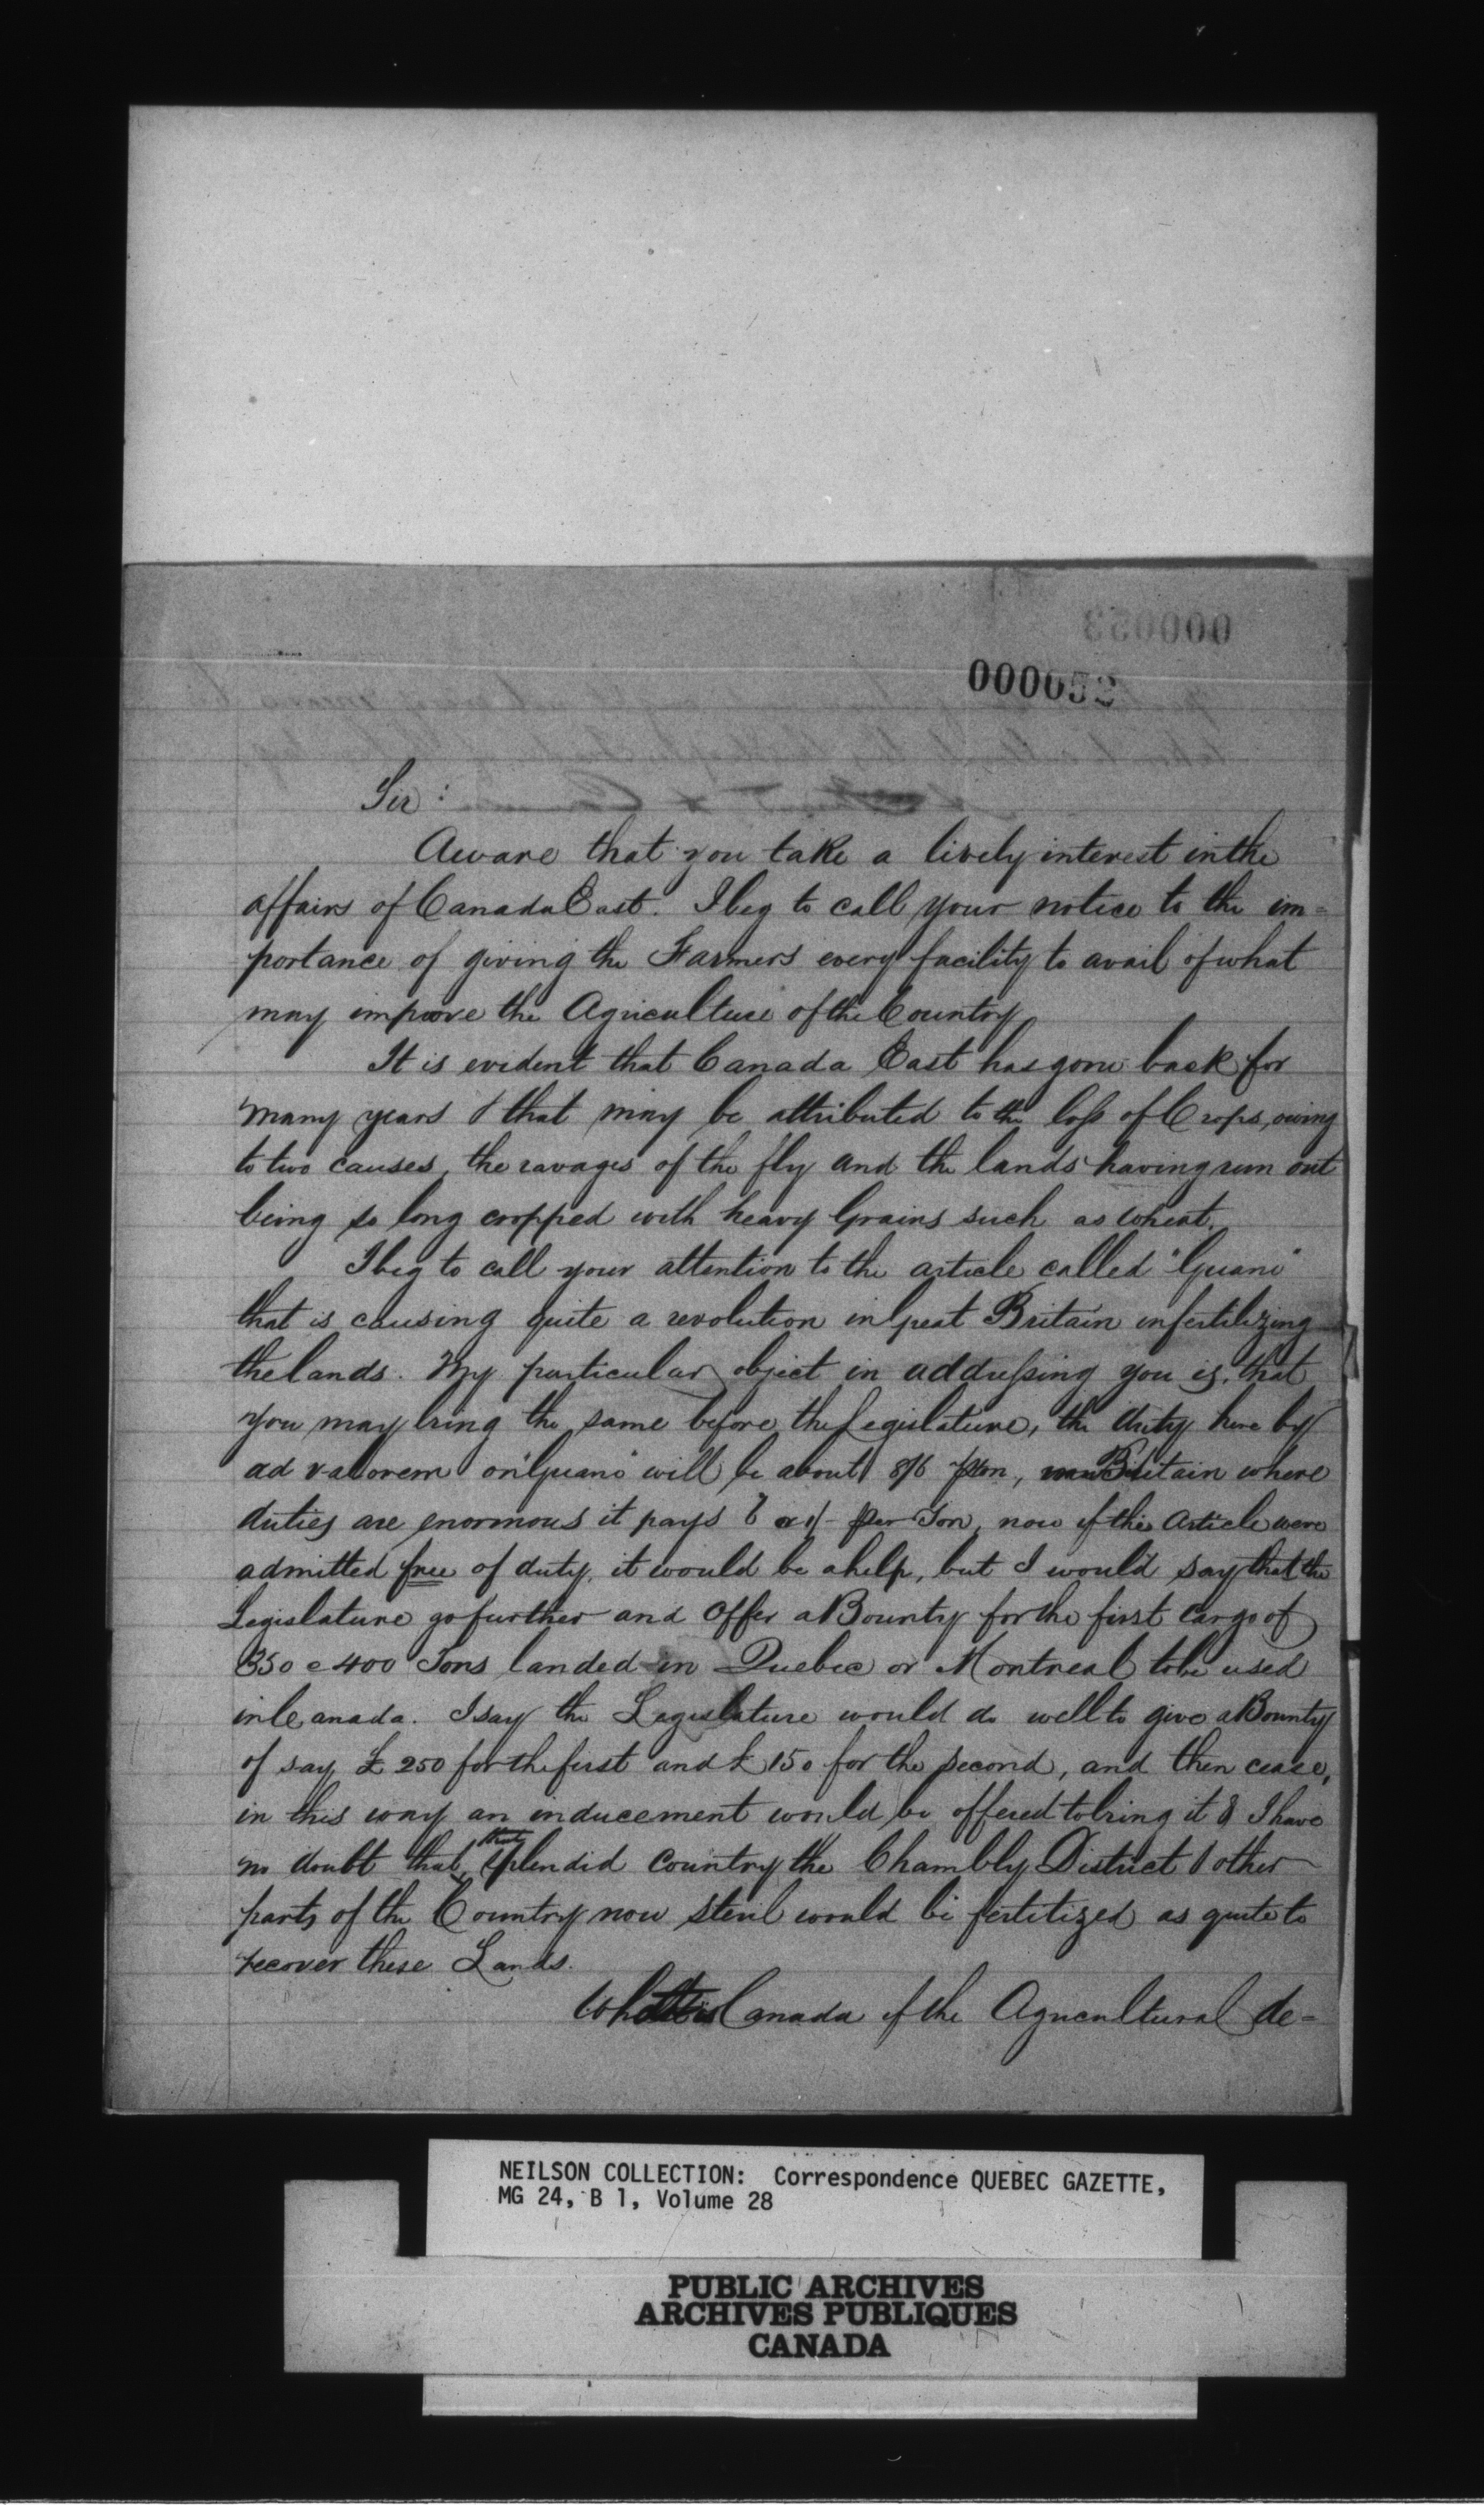 000053
000052
Sir:
Aware that you take a lively interest in the
affairs of Canada East. I beg to call your notice to the im=
portance of giving the Farmers every facility to avail of what
may improve the Agriculture of the Country
It is evident that Canada East has gone back for
many years & that may be attributed to the loss of Crops, owing
to two causes, the ravages of the fly and the lands having run out
being so long cropped with heavy Grains such as wheat.
I beg to call your attention to the article called "Guano"
that is causing quite a revolution in Great Britain in fertilizing
the lands. My particular object in addressing you is, that
you may bring the same before the Legislature, the duty here by
ad valorem on "Guano" will be about 8/6 pton, Britain where
duties are enormous it pays 6 or 1/- per Ton, now if this Article were
admitted free of duty, it would be a help, but I would say that the
Legislature go further and Offer a Bounty for the first Cargo of
350 @ 400 Tons landed in Quebec or Montreal to be used
in Canada. I say the Legislature would do well to give a Bounty
of say £250 for the first and £150 for the second, and then cease,
in this way an inducement would be offered to bring it & I have
no doubt that that splendid Country the Chambly District & other
parts of the Country now steril would be fertilized as quite to
recover these Lands.
What is Canada if the Agricultural de=
NEILSON COLLECTION: Correspondence QUEBEC GAZETTE,
MG 24, B 1, Volume 28
PUBLIC ARCHIVES
ARCHIVES PUBLIQUES
CANADA